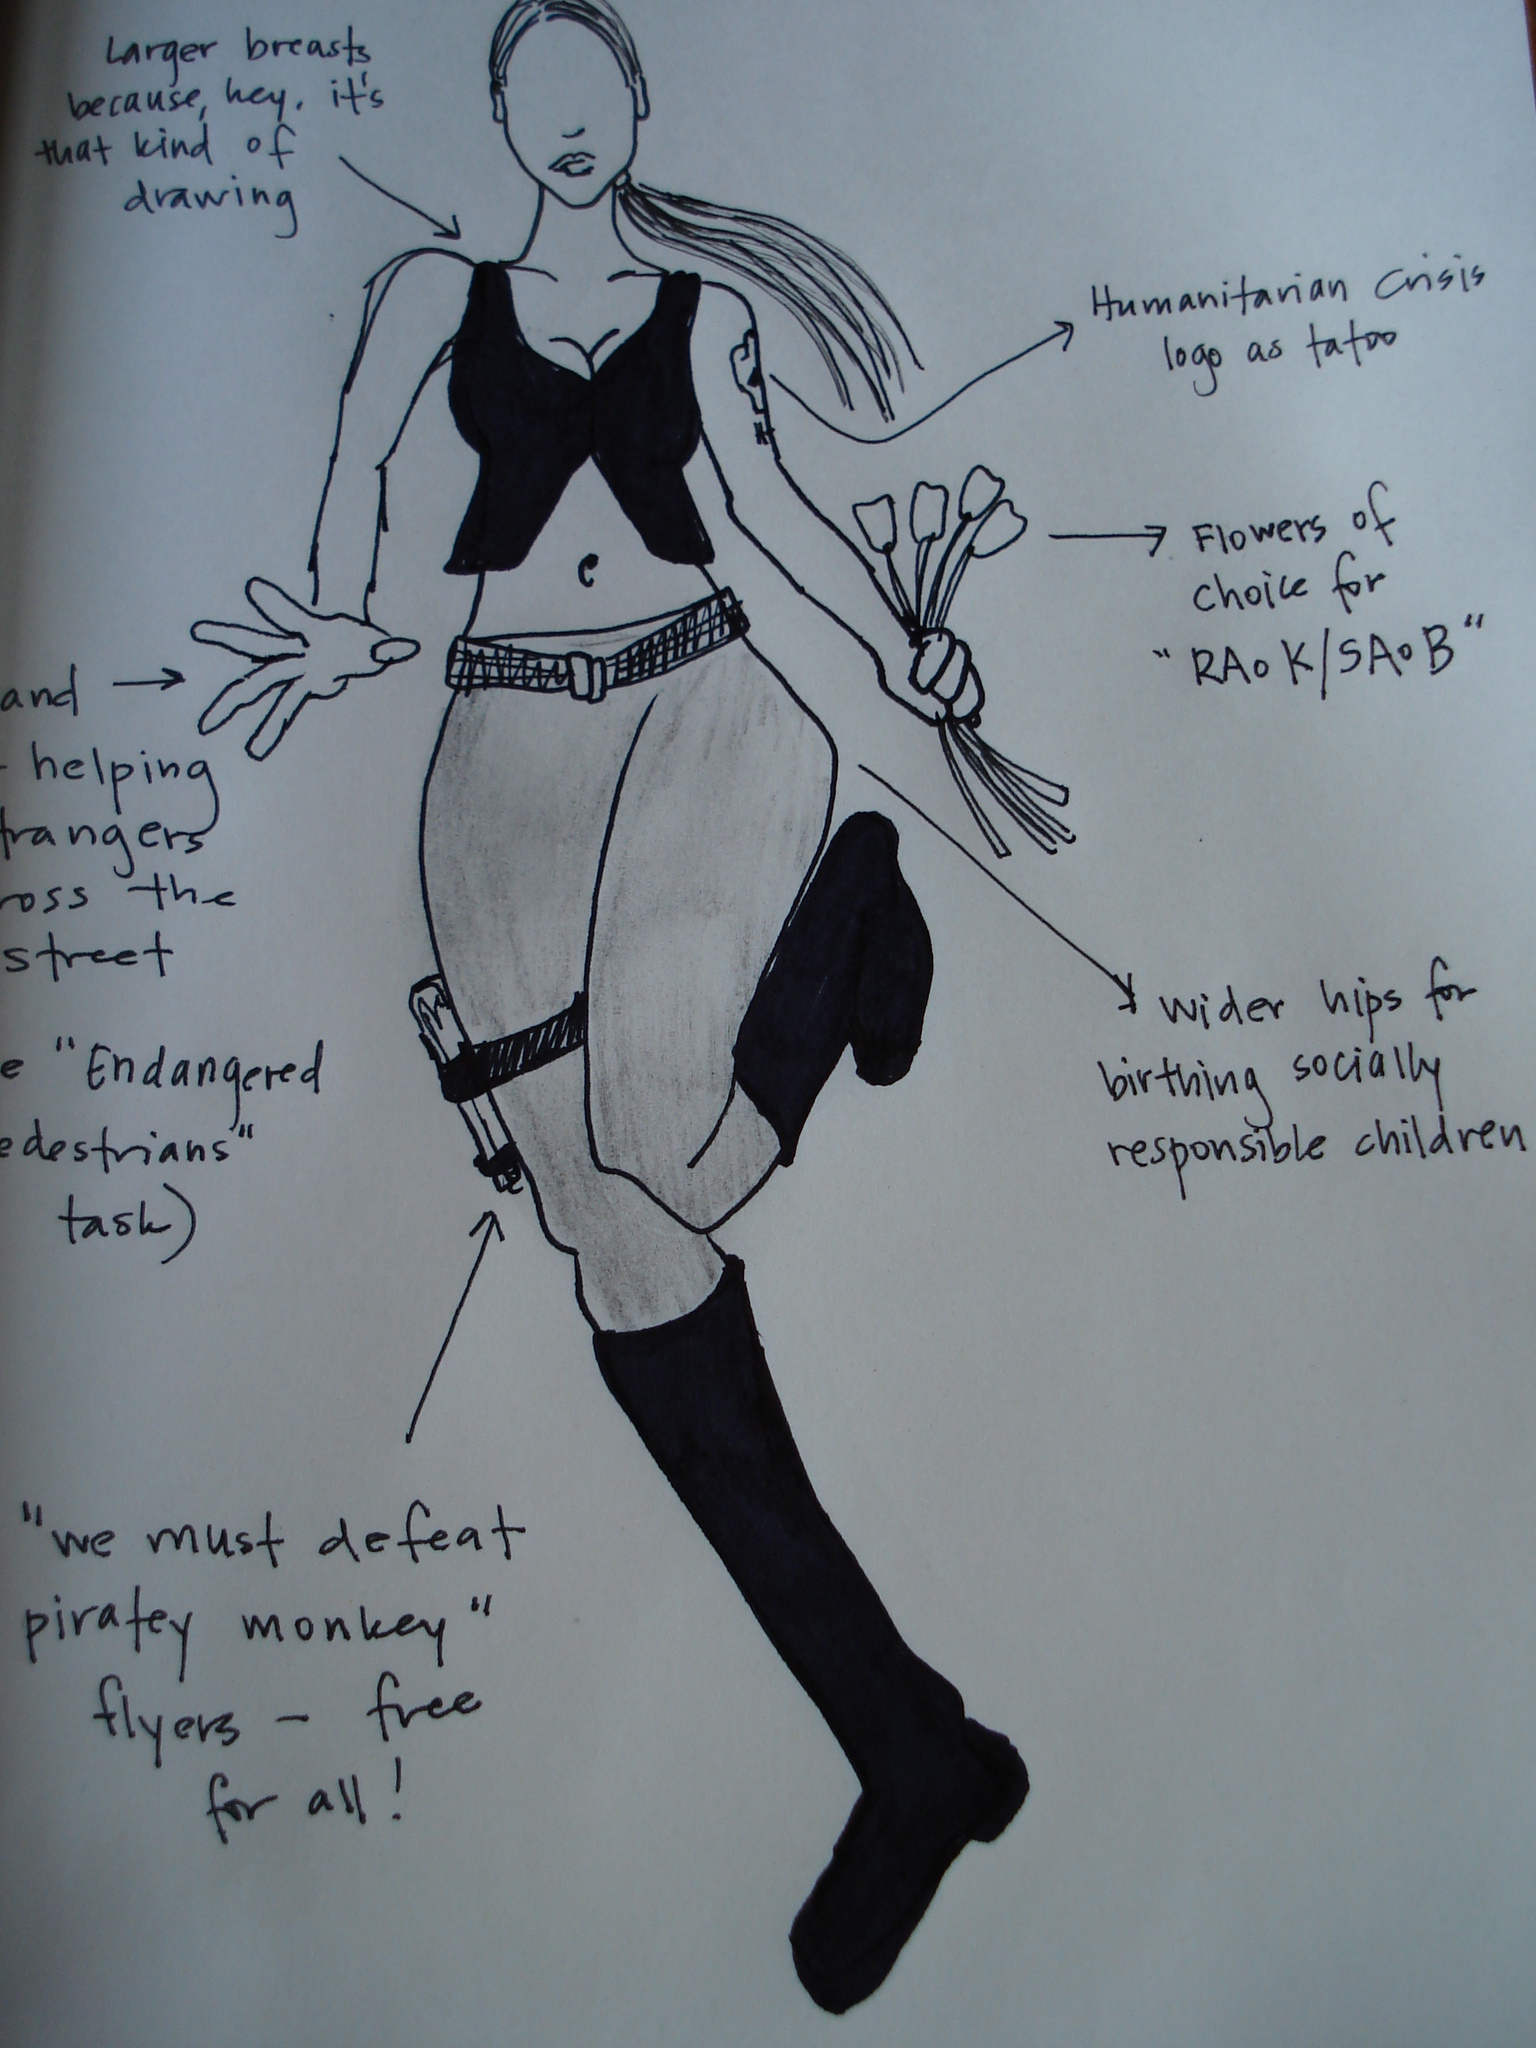 Larger breasts
because, hey. it's
that kind of
drawing
Humanitarian Crisis
logo as tatoo
Flowers of
choice for
"RAoK/SAoB"
and
helping
trangers
ross the
street
e "Endangered
edestrians"
task)
wider hips for
birthing socially
responsible children
"we must defeat
piratey monkey"
flyers - free
for all!